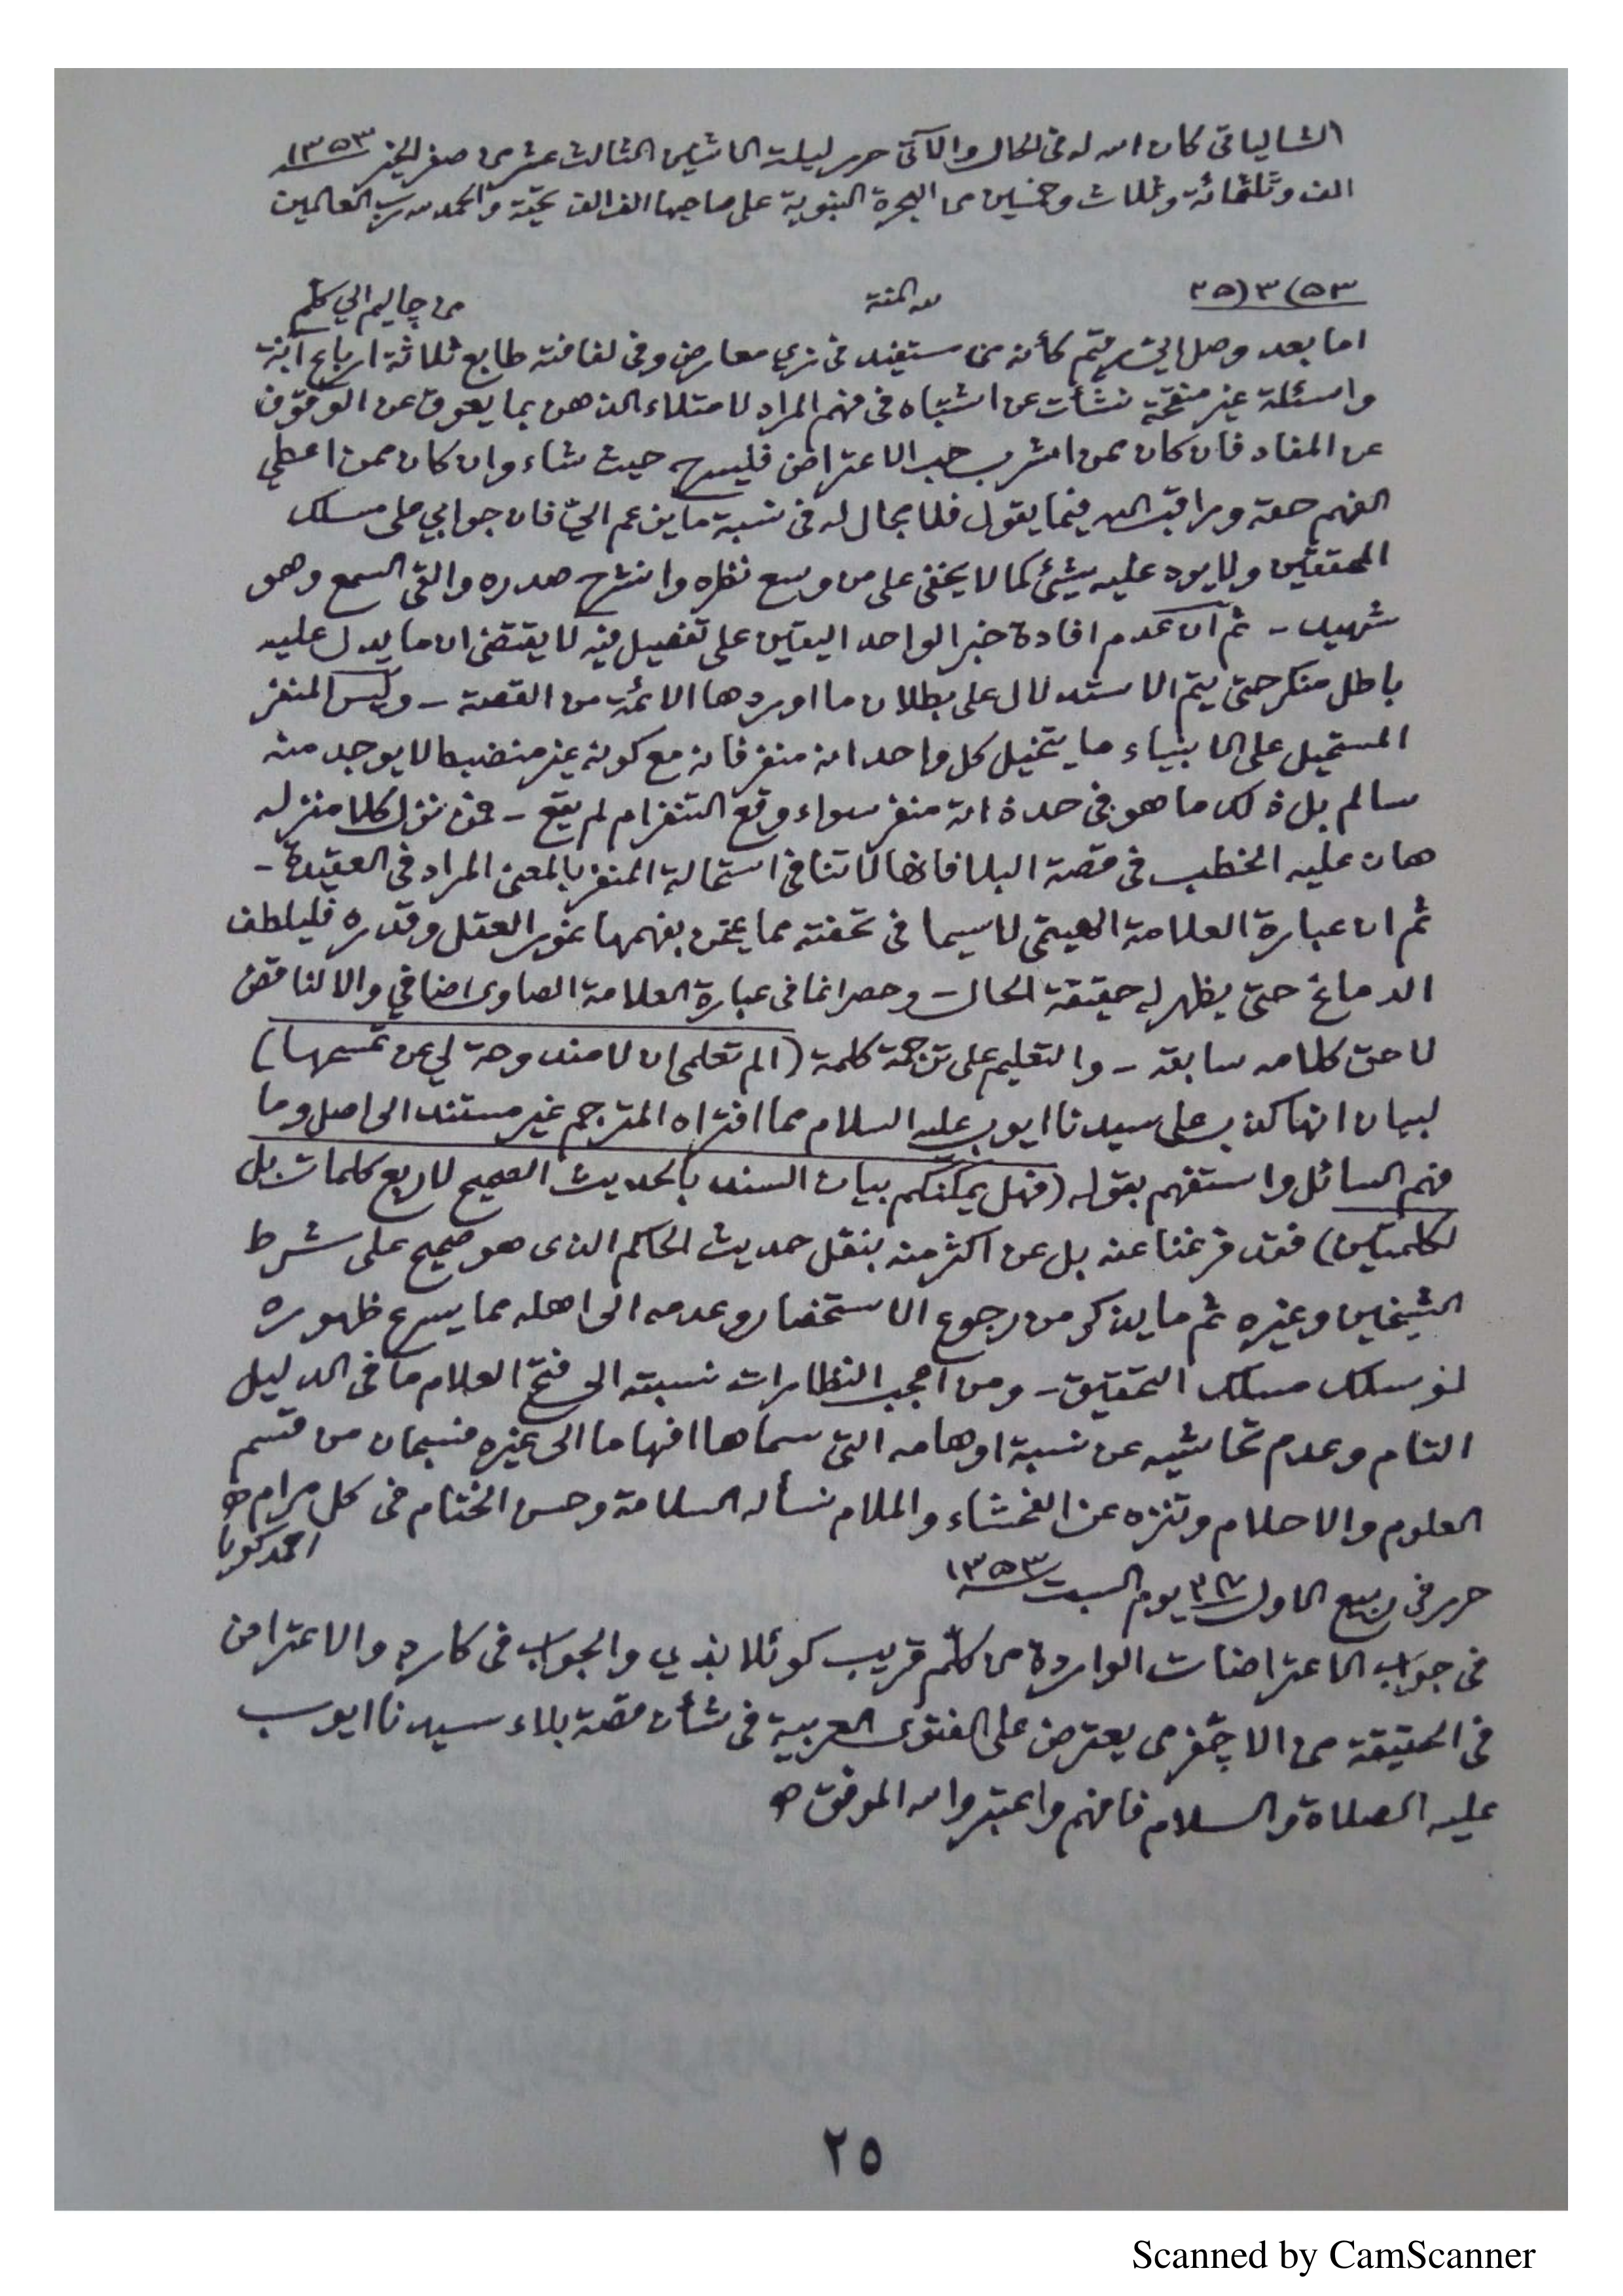 الشالياتي كان الله له في الحال والآتي حرر ليلة الاثنين الثالث عشر من صفر الخير ١٣٥٣
الف وثلثمائة وثلاث وخمسين من الهجرة النبوية على صاحبها الف الف تحية والحمد لله رب العالمين
من چاليم الي كلّم
لله المنة
٢٥/٣/٥٣
اما بعد وصل اليّ رقيم كأنه من مستفيد في زي معارض وفي لفافته طابع ثلاثة ارباع آنة
واسئلة غير منقحة نشأت عن اشتباه في فهم المراد لامتلاء الذهن بما يعوق عن الوقوف
عن المفاد فان كان ممن اشرب حب الاعتراض فليسرح حيث شاء وان كان ممن اعطي
الفهم حقه وراقب الله فيما يقول فلا مجال له في نسبة ما يزعم اليّ فان جوابي على مسلك
المحققين ولا يرد عليه شيئ كما لا يخفى على من وسع نظره وانشرح صدره والقى السمع وهو
شهيد - ثم ان عدم افادة خبر الواحد اليقين على تفصيل فيه لا يقتضي ان ما يدل عليه
باطل منكر حتى يتم الاستدلال على بطلان ما اوردها الائمة من القصة - وليس المنفر
المستحيل على الانبياء ما يتخيل كل واحد انه منفر فانه مع كونه غير منضبط لا يوجد منه
سالم بل ذلك ما هو في حد ذاته منفر سواء وقع التنفر ام لم يقع - فمن نزل كلا منزله
هان عليه الخطب في قصة البلا فانها لا تنافي استحالة المنفر بالمعنى المراد في العقيدة -
ثم ان عبارة العلامة الهيتمي لا سيما في تحفته مما يمتحن بفهمها غور العقل وقدره فليلطف
الدماغ حتى يظهر له حقيقة الحال - وحصر انما في عبارة العلامة الصاوي اضافي والا لناقض
لاحق كلامه سابقه - والتعليم على ترجمة كلمة (الم تعلمي ان لا مندوحة لي عن تمسيحها)
لبيان انها كذب على سيدنا ايوب عليه السلام مما افتراه المترجم غير مستند الى اصل وما
فهم السائل واستفهم بقوله (فهل يمكنكم بيان السند بالحديث الصحيح لاربع كلمات بل
لكلمتين) فقد فرغنا عنه بل عن اكثر منه بنقل حديث الحاكم الذي هو صحيح على شرط
الشيخين وغيره ثم ما يذكر من رجوع الاستحضار وعدمه الى اهله مما يسرع ظهوره
لو سلك مسلك التحقيق - ومن اعجب النظارات نسبته الى فتح العلام ما في الدليل
التام وعدم تحاشيه عن نسبة اوهامه التي سماها افهاما الى غيره فسبحان من قسم
العلوم والاحلام وتنزه عن الفحشاء والملام نسأله السلامة وحسن الختام في كل مرام اه
احمد كويا
حرر في ربيع الاول يوم السبت ١٣٥٣
في جواب الاعتراضات الواردة من كلّم قريب كوئلا بذي والجواب في كارد والاعتراض
في الحقيقة من الاچّفر من يعترض على الفتوى العربية في شأن قصة بلاء سيدنا ايوب
عليه الصلاة والسلام فافهم واعتبر والله الموفق اه
٢٥
Scanned by CamScanner